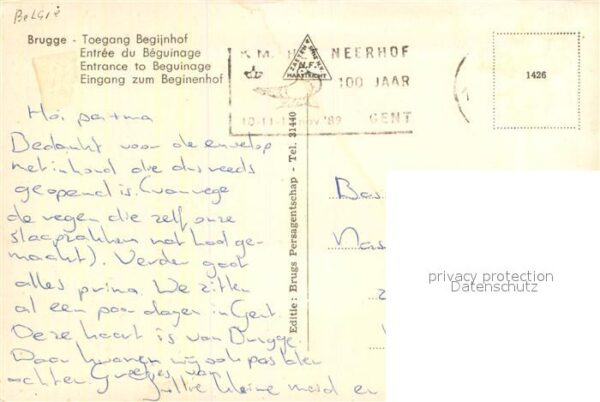 België
Brugge - Toegang Begijnhof
Entrée du Béguinage
Entrance to Beguinage
Eingang zum Beginenhof
K.M. NEERHOF
100 JAAR
10-11-1 nov '89 GENT
N.F.
MAASTRICHT
1426
Editie: Brugs Persagentschap - Tel. 31440
Hoi pa+ma
Bedankt voor de envelop
met inhoud die dus reeds
geopend is. (vanwege
de regen die zelf onze
slaapzakken nat had ge-
maakt). Verder gaat
alles prima. We zitten
al een paar dagen in Gent.
Deze kaart is van Brugge.
Daar kwamen wij ook pas later
achter. Groetjes van
jullie kleine meid en
Bas
privacy protection
Datenschutz